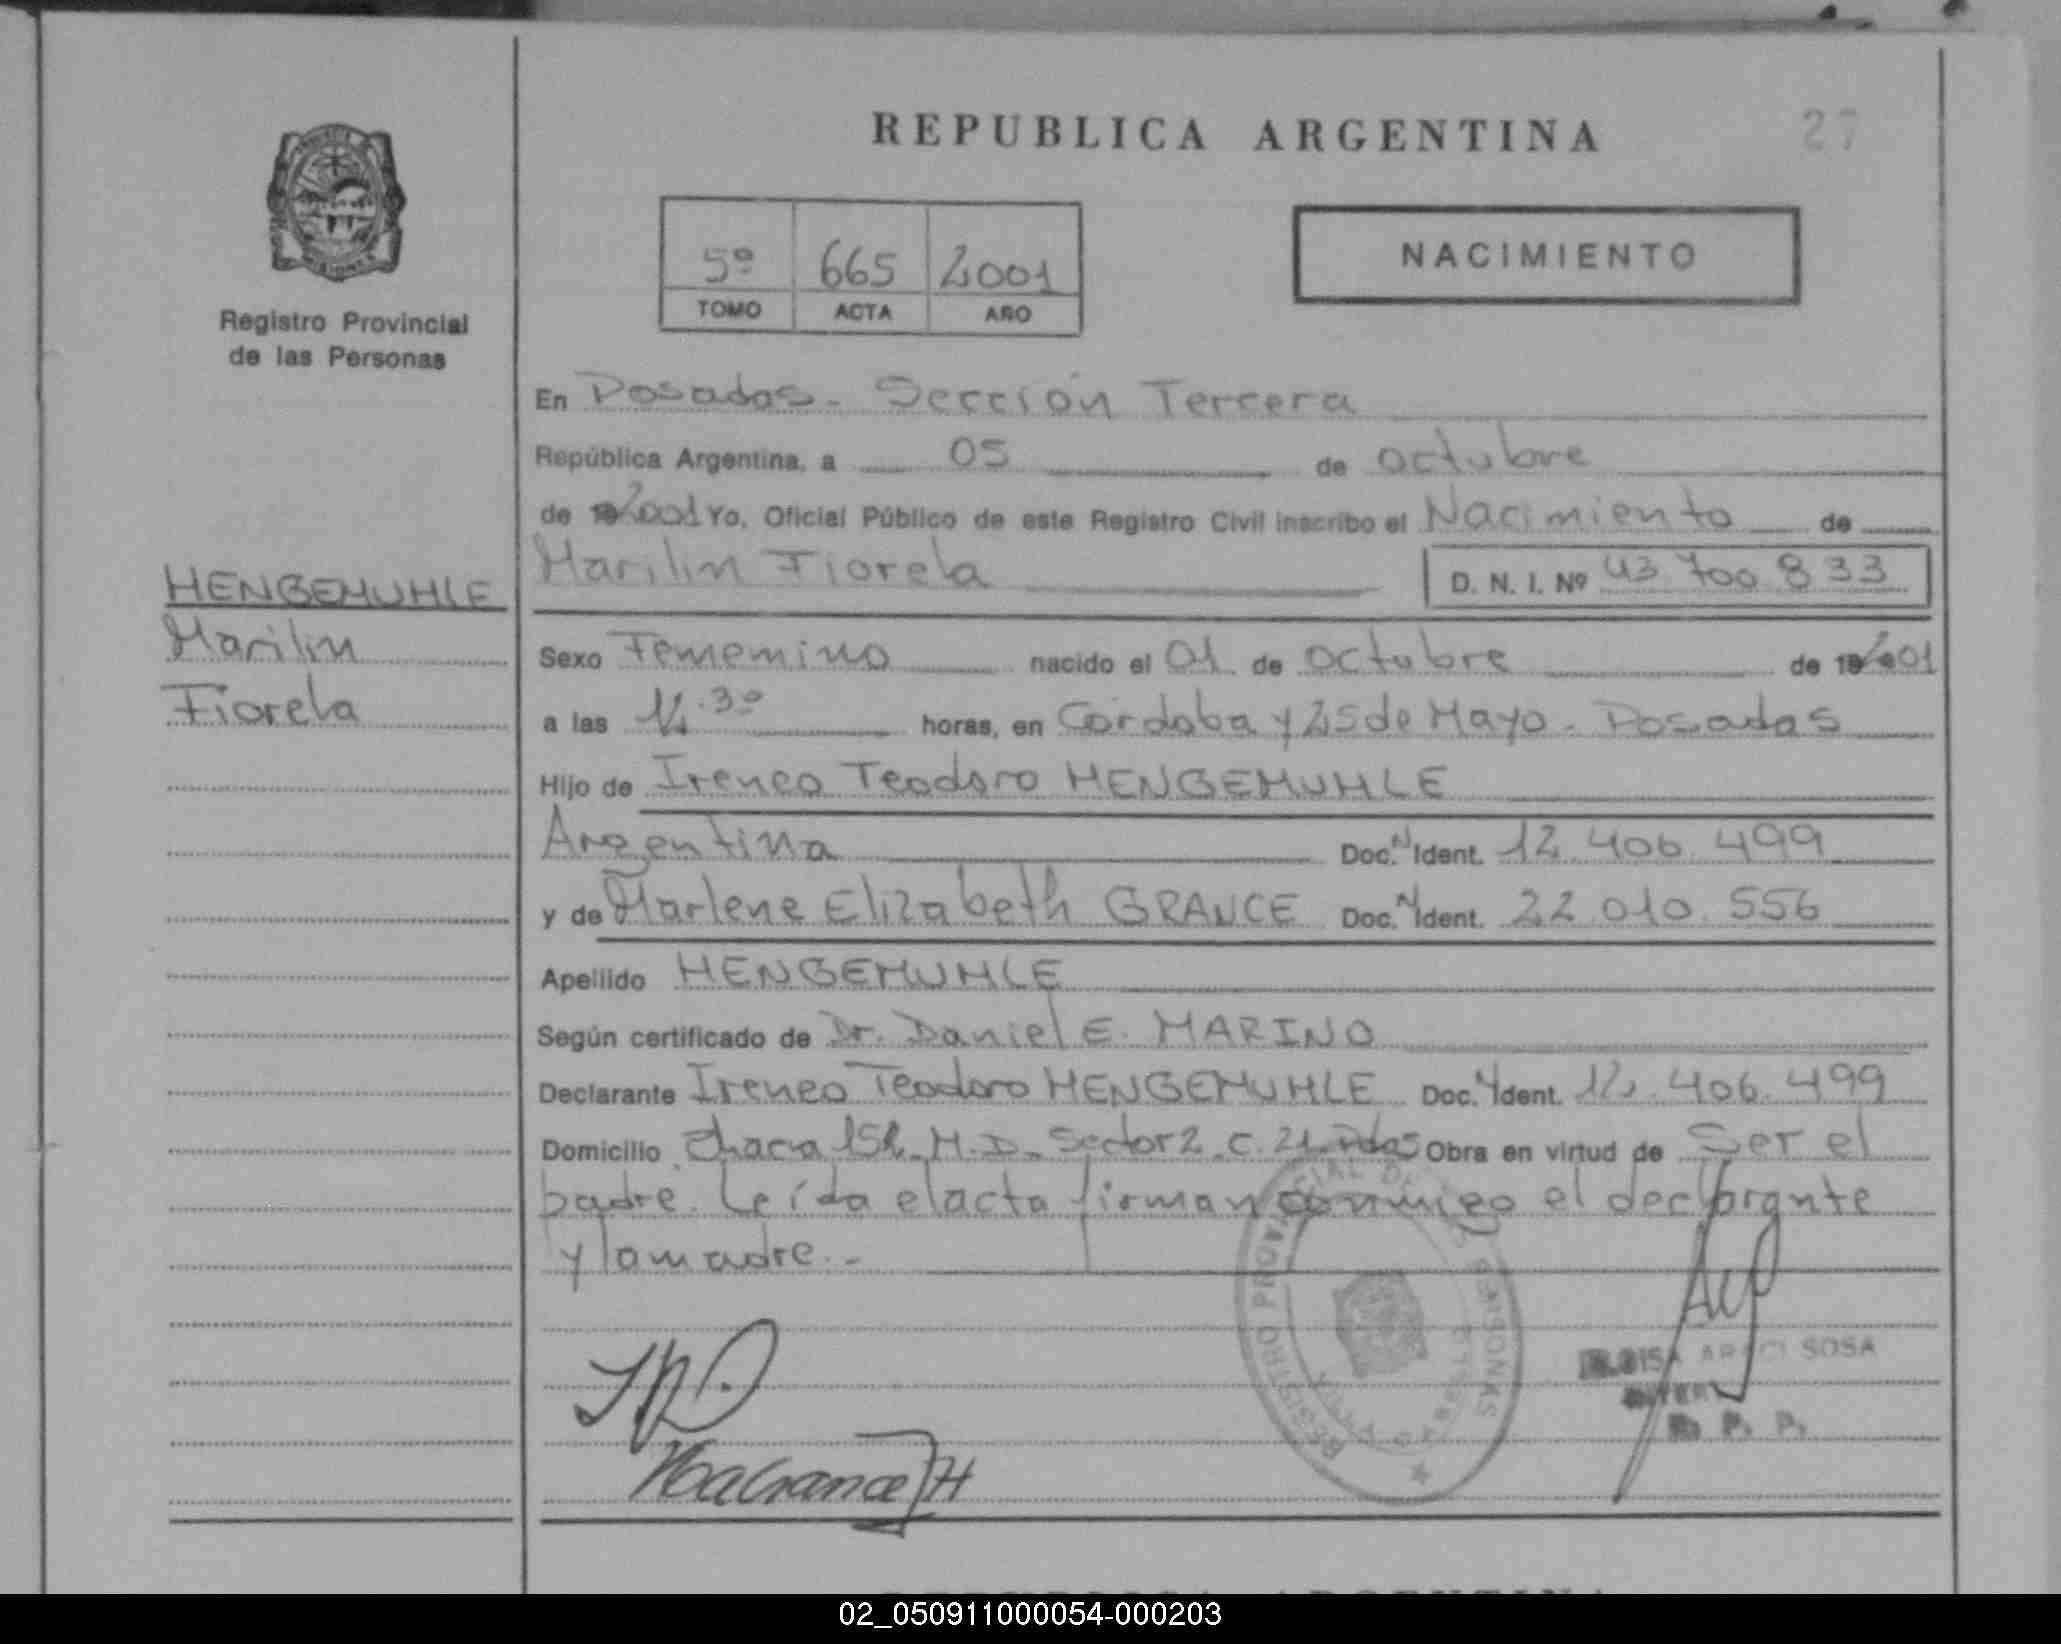 REPUBLICA ARGENTINA
27
5º 665 2001
TOMO ACTA AÑO
NACIMIENTO
Registro Provincial
de las Personas
En Posadas - Sección Tercera
República Argentina, a 05 de octubre
de 2001 Yo, Oficial Público de este Registro Civil inscribo el Nacimiento de
Marilin Fiorela D. N. I. Nº 43 700 833
HENGEMUHLE
Marilin
Fiorela
Sexo Femenino nacido el 01 de octubre de 2001
a las 12.30 horas, en Córdoba y 25 de Mayo - Posadas
Hijo de Ireneo Teodoro HENGEMUHLE
Argentina Doc. N Ident. 12.406.499
y de Marlene Elizabeth GRANCE Doc. N Ident. 22.010.556
Apellido HENGEMUHLE
Según certificado de Dr. Daniel E. MARINO
Declarante Ireneo Teodoro HENGEMUHLE Doc. N Ident. 12.406.499
Domicilio Chacra 152 - M.D. - Sector 2 - C. 21 - Pdas Obra en virtud de Ser el
padre. Leída el acta firman conmigo el declarante
y la madre.-
REGISTRO PROVINCIAL DE LAS PERSONAS
SOSA
R. P. P.
02_050911000054-000203